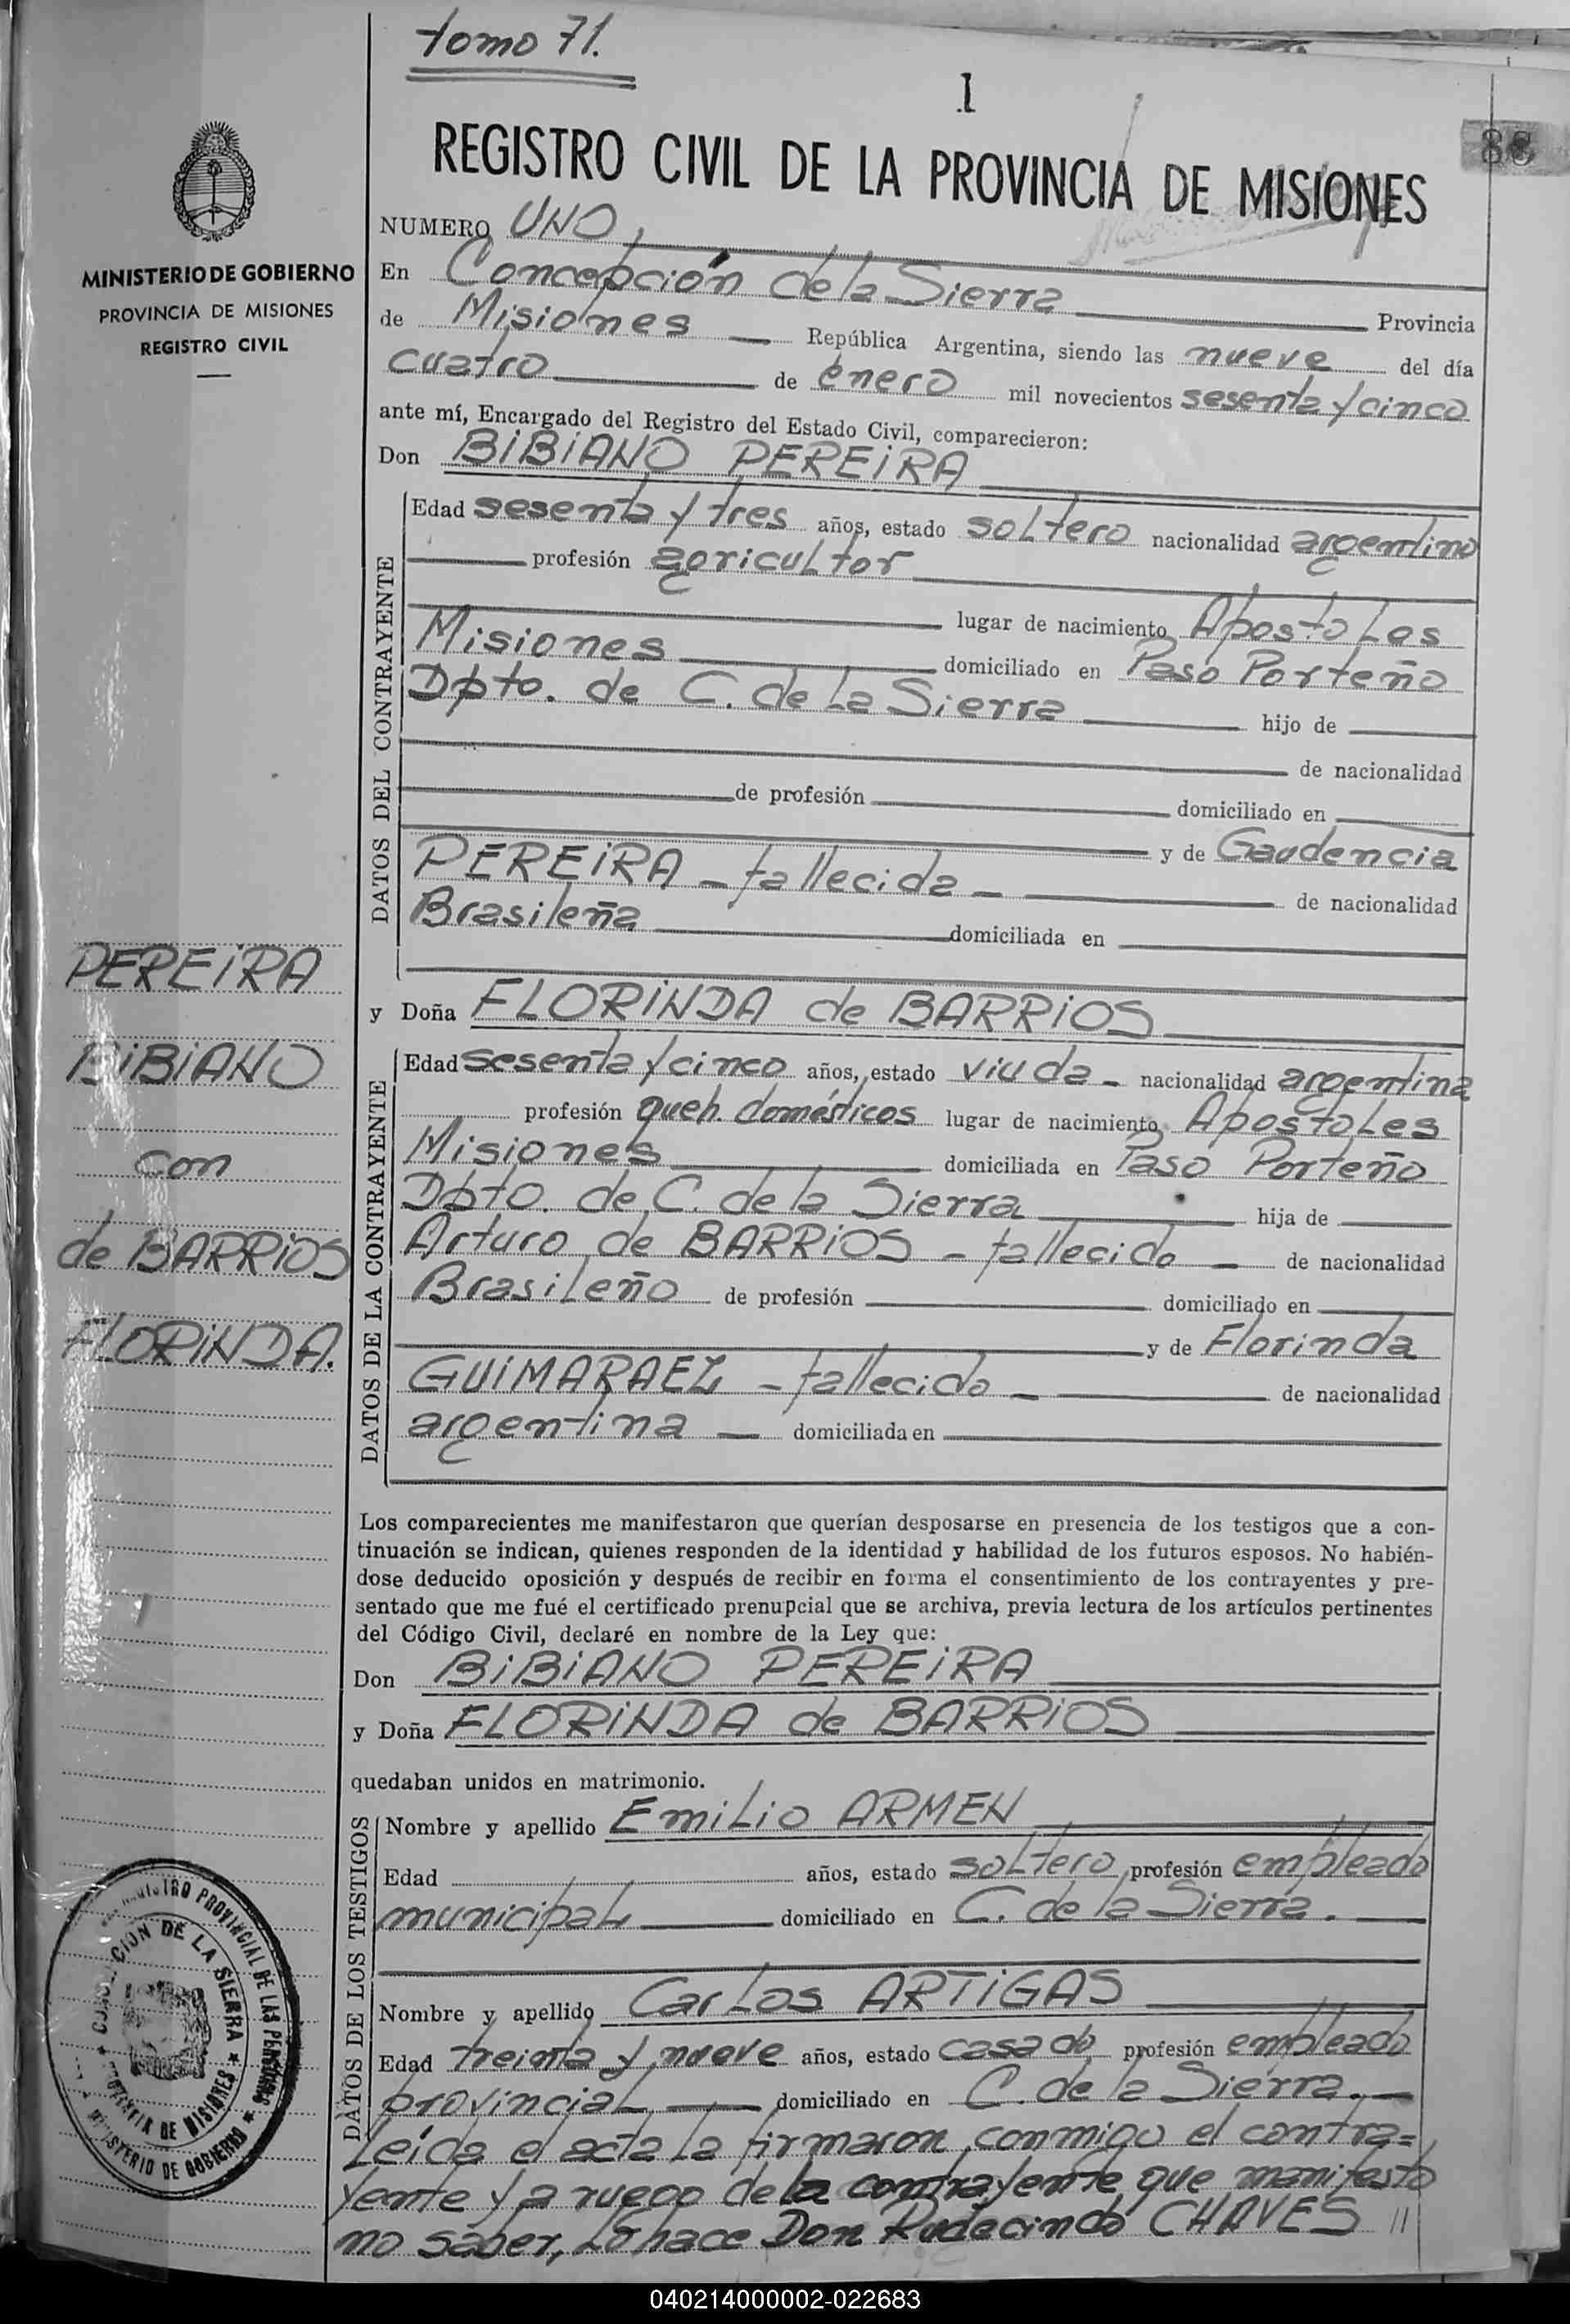 tomo 71.
1
88
REGISTRO CIVIL DE LA PROVINCIA DE MISIONES
MINISTERIO DE GOBIERNO
PROVINCIA DE MISIONES
REGISTRO CIVIL
NUMERO UNO,
En Concepción de la Sierra Provincia
de Misiones República Argentina, siendo las nueve del día
cuatro de enero mil novecientos sesenta y cinco
ante mí, Encargado del Registro del Estado Civil, comparecieron:
Don BIBIANO PEREIRA
DATOS DEL CONTRAYENTE
Edad sesenta y tres años, estado soltero nacionalidad argentino
profesión agricultor
lugar de nacimiento Apostoles
Misiones domiciliado en Paso Porteño
Dpto. de C. de la Sierra hijo de
de nacionalidad
de profesión domiciliado en
y de Gaudencia
PEREIRA - fallecida - de nacionalidad
Brasileña domiciliada en
y Doña FLORINDA de BARRIOS
DATOS DE LA CONTRAYENTE
Edad sesenta y cinco años, estado viuda - nacionalidad argentina
profesión queh. domésticos lugar de nacimiento Apostoles
Misiones domiciliada en Paso Porteño
Dpto. de C. de la Sierra hija de
Arturo de BARRIOS - fallecido - de nacionalidad
Brasileño de profesión domiciliado en
y de Florinda
GUIMARAEZ - fallecido - de nacionalidad
argentina - domiciliada en
PEREIRA
BIBIANO
con
de BARRIOS
FLORINDA.
Los comparecientes me manifestaron que querían desposarse en presencia de los testigos que a con-
tinuación se indican, quienes responden de la identidad y habilidad de los futuros esposos. No habién-
dose deducido oposición y después de recibir en forma el consentimiento de los contrayentes y pre-
sentado que me fué el certificado prenupcial que se archiva, previa lectura de los artículos pertinentes
del Código Civil, declaré en nombre de la Ley que:
Don BIBIANO PEREIRA
y Doña FLORINDA de BARRIOS
quedaban unidos en matrimonio.
DATOS DE LOS TESTIGOS
Nombre y apellido Emilio ARMEN
Edad años, estado soltero profesión empleado
municipal domiciliado en C. de la Sierra.
Nombre y apellido Carlos ARTIGAS
Edad treinta y nueve años, estado casado profesión empleado
provincial domiciliado en C. de la Sierra.
Leída el acta la firmaron conmigo el contra=
yente y a ruego de la contrayente que manifesto
no saber, lo hace Don Rudecindo CHAVES //
REGISTRO PROVINCIAL DE LAS PERSONAS
CONCEPCION DE LA SIERRA
PROVINCIA DE MISIONES
MINISTERIO DE GOBIERNO
040214000002-022683